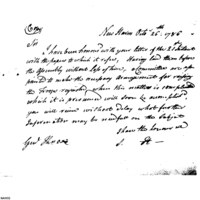 Copy
New Haven Octr 26th 1786
Sir
I have been honored with your letter of the
with the papers to which it refers, Having laid them before
the Assembly without loss of time, a Committee are ap-
pointed to make the necessary arrangements for raising
the Troops required, when this matter is compleated
which it is presumed will soon be accomplished,
you will receive without delay what further
Information may be needful on the Subject
I have the honour &c
S. H—
Genl Knox